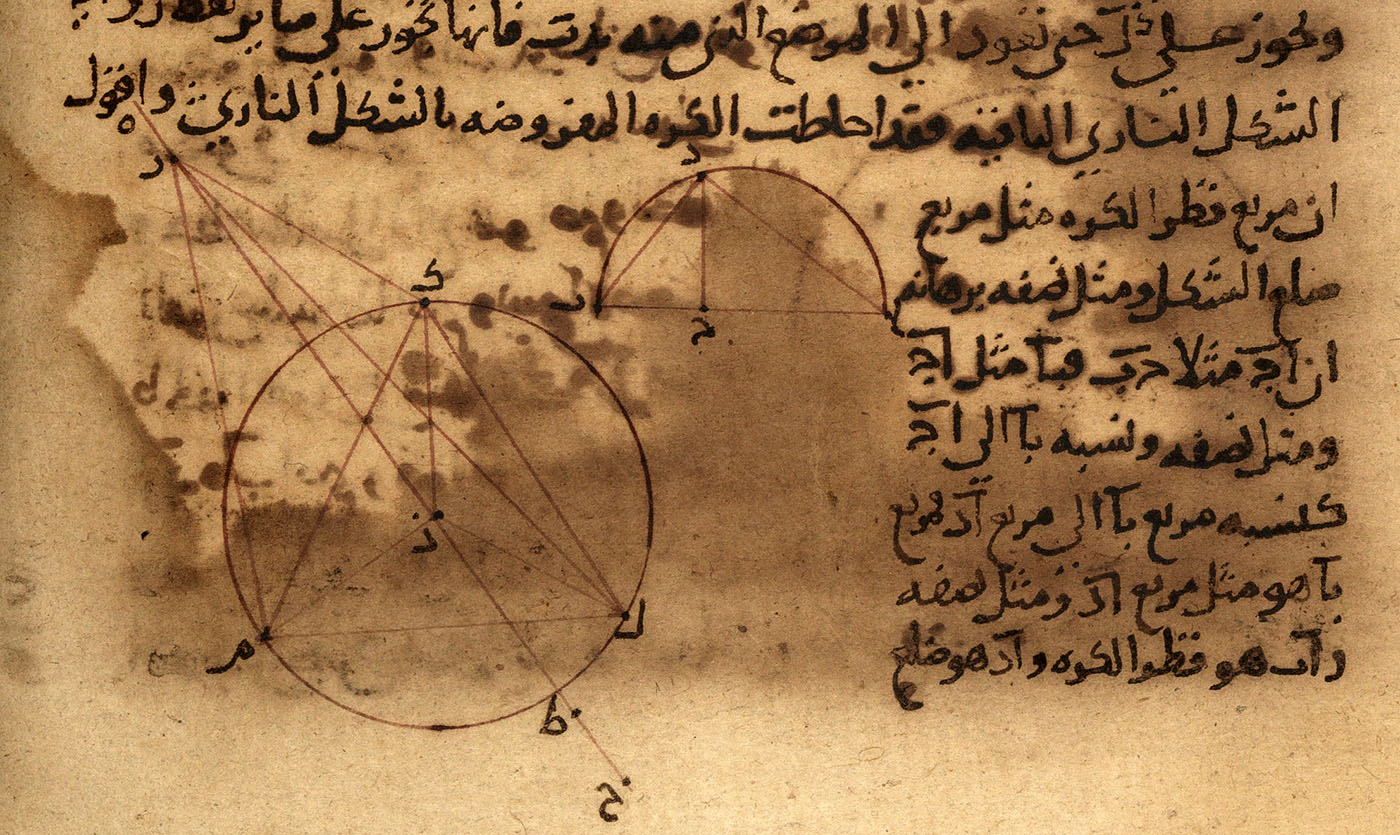 وتحوز على حتى تعود الى الموضع الذي منه بدت فانها تحوز على
الشكل الناري الباقيه فقد احاطت الكره المفروضه بالشكل الناري واقول
ان مربع قطر الكره مثل مربع
ضلع الشكل ومثل نصفه برهانه
ان اج مثلا جب فبا مثل اج
ومثل نصفه ونسبه با الى اج
كنسبه مربع با الى مربع اد فمربع
با هو مثل مربع اد ومثل نصفه
و اب هو قطر الكره و اد هو ضلع
د
ر
ا
ج
ب
ك
ز
ل
م
ط
ح